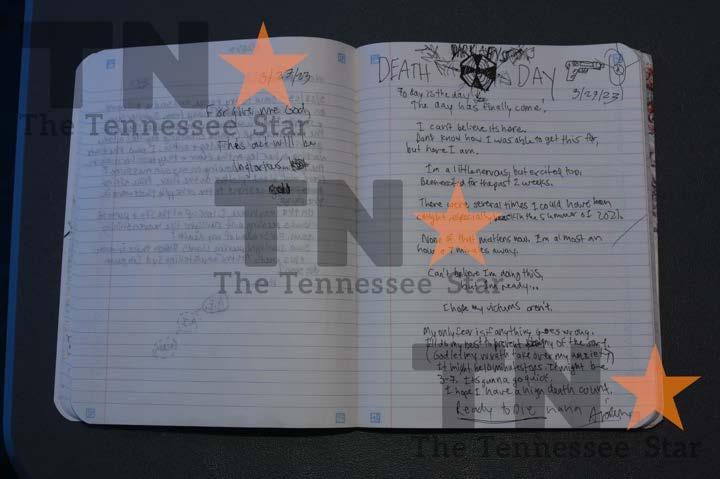 TN
The Tennessee Star
3/27/23
Forgive me God,
This act will be
inglorious
DARK ABYSS
DEATH DAY
3/27/23
Today is the day
The day has finally come!
I can't believe its here.
Dont know how I was able to get this far,
but here I am.
I'm a little nervous, but excited too.
Been excited for the past 2 weeks.
There were several times I could have been
caught especially back in the summer of 2021.
None of that matters now. I'm almost an
hour & 7 minutes away.
Can't believe I'm doing this,
but I'm ready...
I hope my victims aren't.
My only fear is if anything goes wrong.
I'll do my best to prevent any of the sort.
(God let my wrath take over my anxiety)
It might be 10 minutes tops. It might be
3-7. Its gunna go quick.
I hope I have a high death count.
Ready to die haha
Aiden
TN
The Tennessee Star
TN
The Tennessee Star